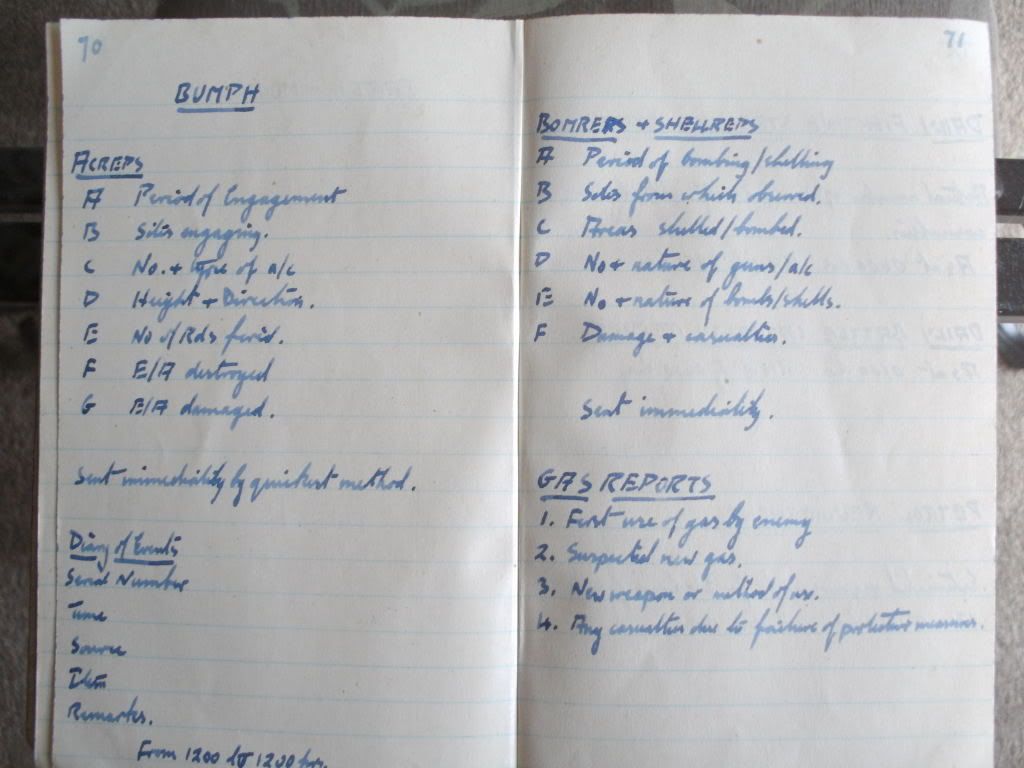 70
BUMPH
ACREPS
A Period of Engagement
B Sites engaging.
C No. + type of a/c
D Height + Direction.
E No of Rds fired.
F E/A destroyed
G E/A damaged.
Sent immediately by quickest method.
Diary of Events
Serial Number
Time
Source
Item
Remarks.
From 1200 to 1200 hrs.
71
BOMREPS + SHELLREPS
A Period of bombing/shelling
B Sites from which observed.
C Areas shelled/bombed.
D No + nature of guns/a/c
E No + nature of bombs/shells.
F Damage + casualties.
Sent immediately.
GAS REPORTS
1. First use of gas by enemy
2. Suspected new gas.
3. New weapon or method of use.
4. Any casualties due to failure of protective measures.